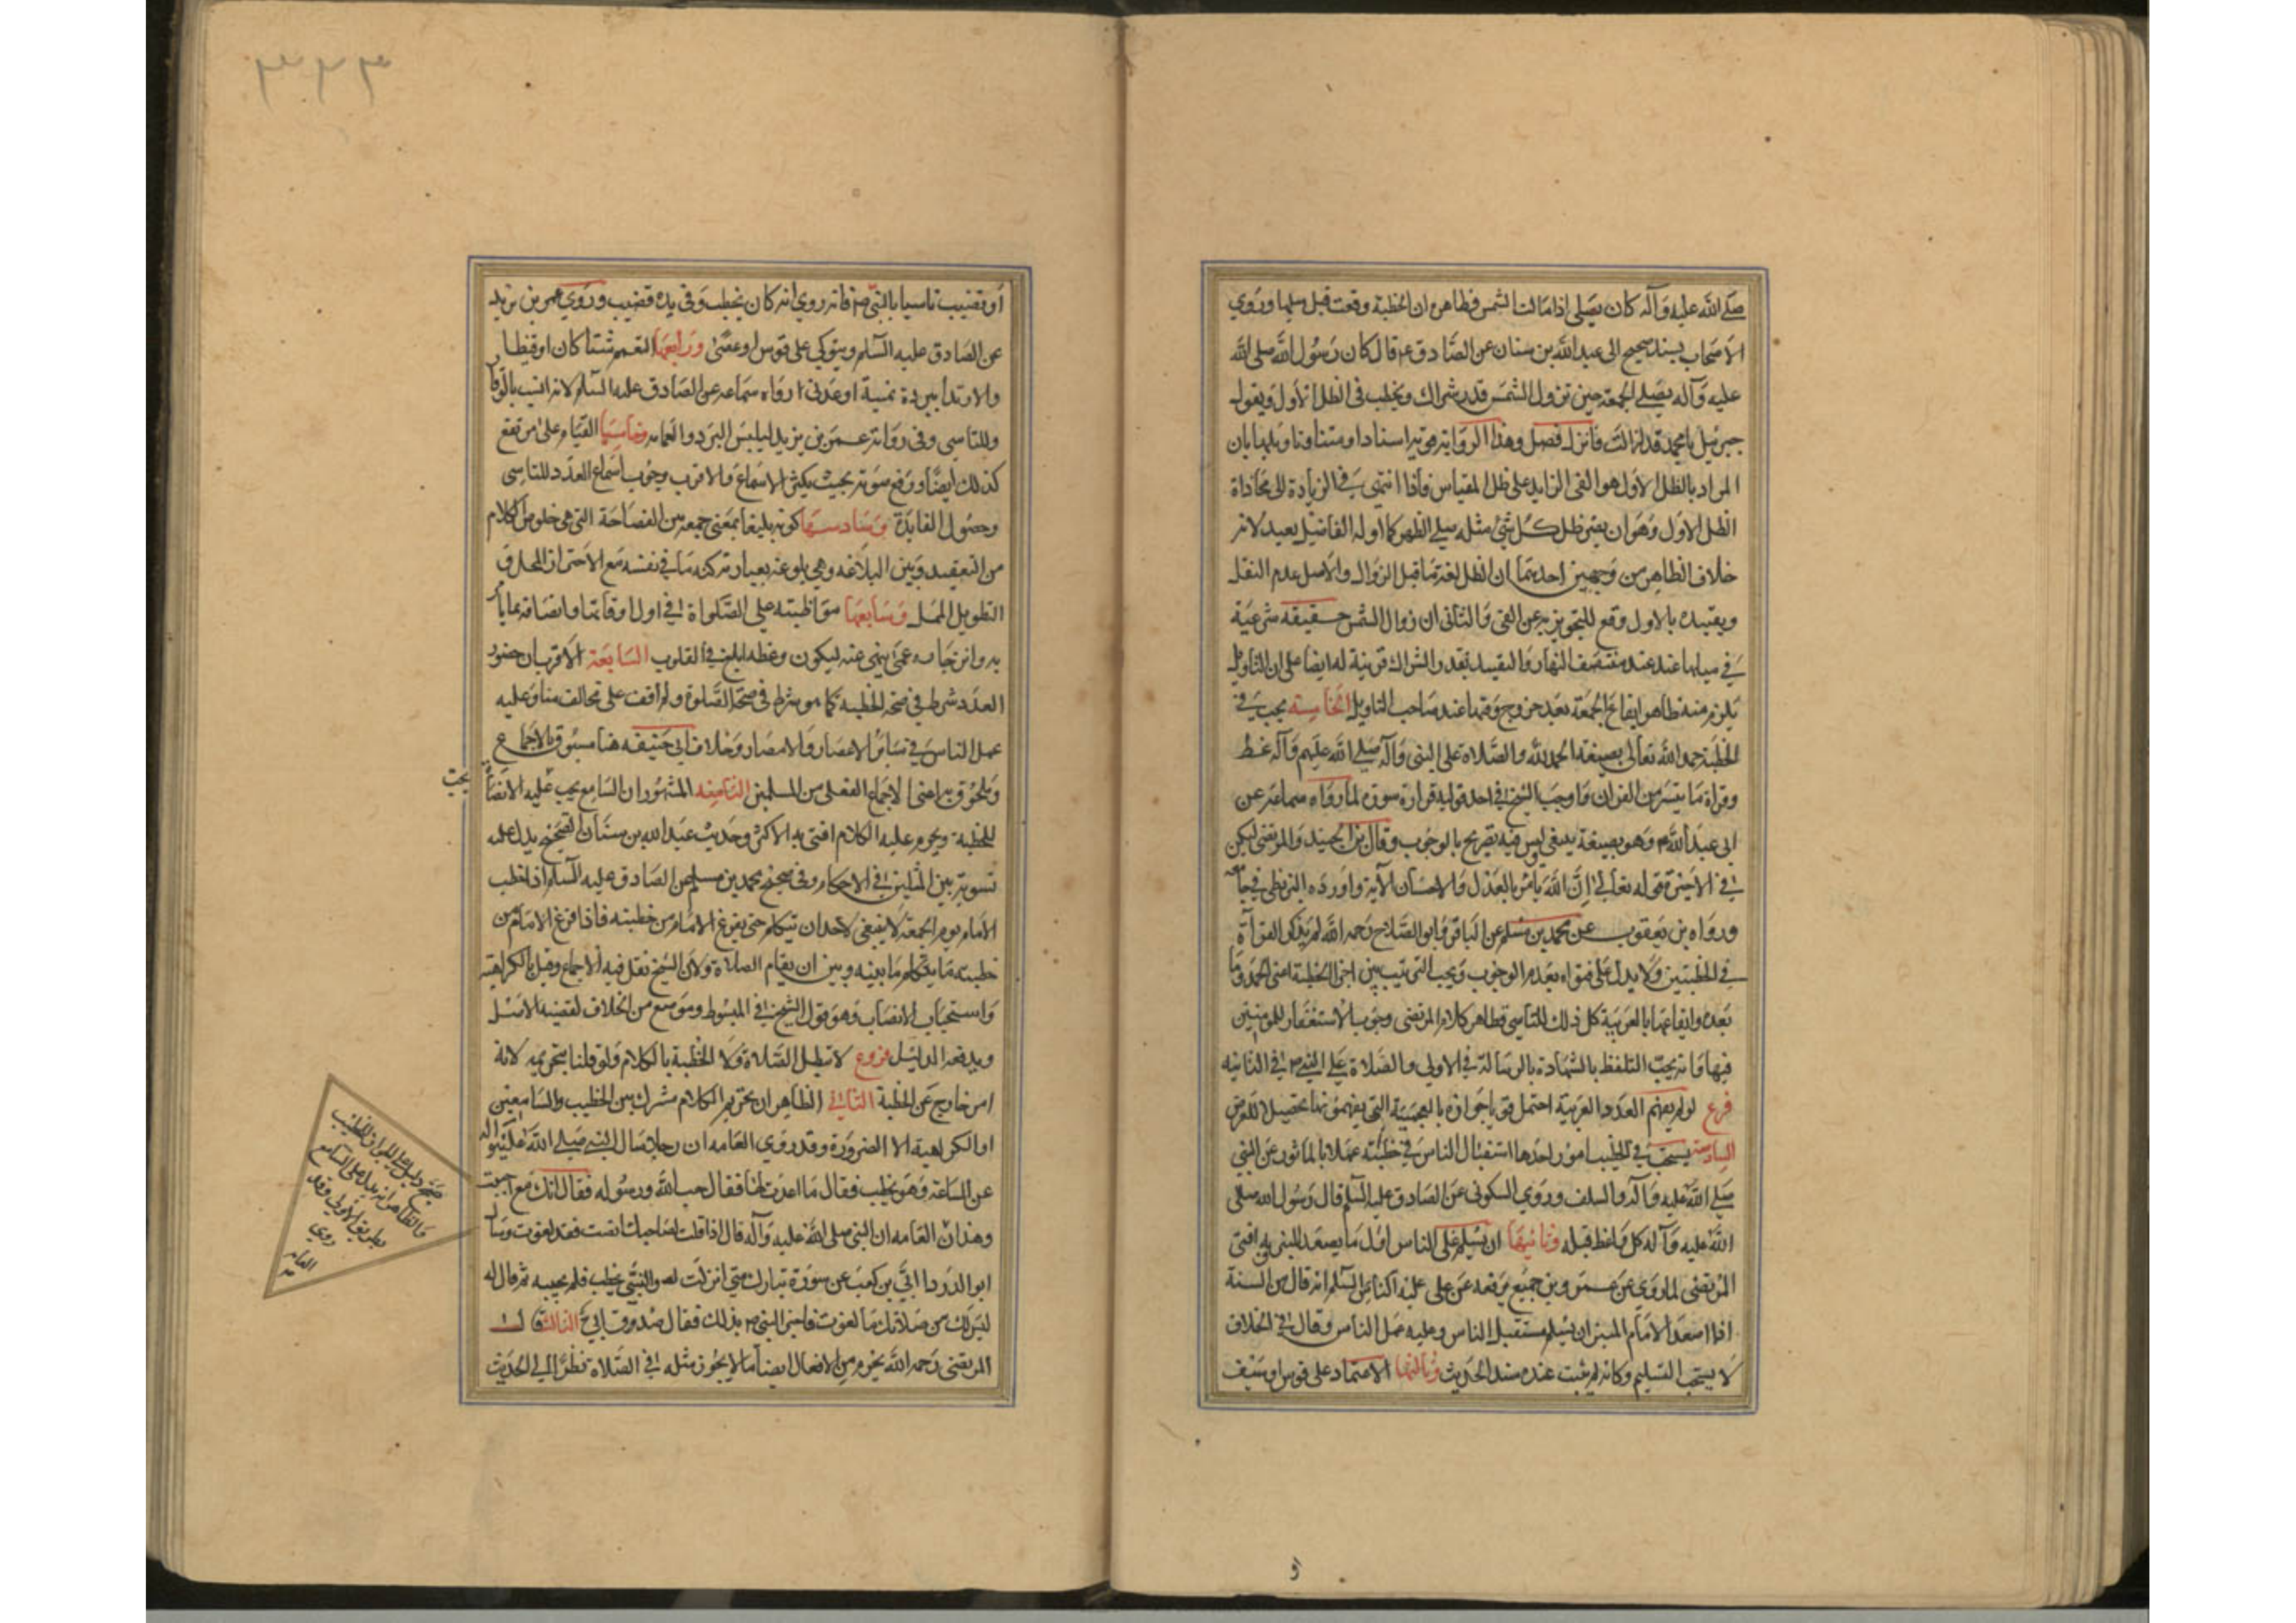 صلى الله عليه وآله كان يصلي اذا مالت الشمس فظاهره ان الخطبة وقعت قبل ميلها وروي
الاصحاب بسند صحيح الى عبد الله بن سنان عن الصادق ع قال كان رسول الله صلى الله
عليه وآله يصلي الجمعة حين تزول الشمس قدر شراك ويخطب في الظل الاول ويقول
جبرئيل يا محمد قد زالت فانزل فصل وهذا الرواية اسنادا ومتنا وتاويلها بان
المراد بالظل الاول هو الفئ الزايد على ظل المقياس فاذا انتهى في الزيادة الى محاذاة
الظل الاول وهو ان يصير ظل كل شئ مثله صلى الظهر كما اوله الفاضل بعيد لانه
خلاف الظاهر من وجهين احدهما ان الظل لغة ما قبل الزوال والاصل عدم النقل
وتقييده بالاول وقع للتجوز به عن الفئ والثاني ان زوال الشمس حقيقة شرعية
في ميلها عند منتصف النهار والتقييد بقدر الشراك قرينة له ايضا على ان التاويل
يلزم منه ظاهرا ايقاع الجمعة بعد خروج وقتها عند صاحب التاويل الخامسة يجب في
الخطبة حمد الله تعالى بصيغة الحمد لله والصلاة على النبي وآله صلى الله عليهم وآله
وقراة ما يتيسر من القران واوجب الشيخ في احد قوليه قراءة سورة لما رواه سماعة عن
ابي عبد الله ع وهو بصيغة ينبغي ليس فيه تصريح بالوجوب وقال بن الجنيد والمرتضى ليكن
في الاخيرة قوله تعالى ان الله يامر بالعدل والاحسان الآية واورده البزنطي في جامعه
ورواه بن يعقوب عن محمد بن مسلم عن الباقر وابو الصلاح رحمه الله لم يذكر القراءة
في الخطبتين ولا يدل على فتواه بعدم الوجوب ويجب الترتيب بين اجزا الخطبة اعني الحمد وما
بعده وايقاعها بالعربية كل ذلك للتاسي فظاهر كلام المرتضى وجوب الاستغفار للمومنين
فيها وانه يجب التلفظ بالشهادة بالرسالة في الاولى والصلاة على النبي ص في الثانيه
فرع لو لم يفهم العدد العربية احتمل قويا جوازه بالعجمية التي يفهمونها تحصيلا للغرض
السادسة يستحب في الخطيب امور احدها استقبال الناس في خطبته عملا بالماثور عن النبي
صلى الله عليه وآله والسلف وروي السكوني عن الصادق عليه السلم قال رسول الله صلى
الله عليه وآله كل واعظ قبله وثانيها ان يسلم على الناس اول ما يصعد المنبر وبه افتى
المرتضى لما روي عن عمرو بن جميع يرفعه عن على عليه السلم انه قال من السنة
اذا صعد الامام المنبر ان يسلم مستقبل الناس وعليه عمل الناس وقال في الخلاف
لا يستحب التسليم وكانه لم يثبت عنده سند الحديث وثالثها الاعتماد على قوس او سيف
او قضيب تاسيا بالنبي ص فانه روي انه كان يخطب وفي يده قضيب وروي عمر بن يزيد
عن الصادق عليه السلم ويتوكي على قوس او عصى ورابعها التعمم شتا كان او قيظا
والارتداء ببردة يمنية او عدني رواه سماعه عن الصادق عليه السلم لانه انسب بالوقار
وللتاسي وفي رواية عمر بن يزيد ليلبس البرد والعمامه وخامسها القيام على مرتفع
كذلك ايضا ورفع صوته بحيث يكثر الاسماع والاقرب وجوب اسماع العدد للتاسي
وحصول الفايدة وسادسها كونه بليغا بمعنى جمعه بين الفصاحة التي هي خلوص الكلام
من التعقيد وبين البلاغه وهي بلوغه بعبارته كنه ما في نفسه مع الاحتراز
التطويل الممل وسابعها مواظبته على الصلواة في اول اوقاتها واتصافه بما يامر
به وانزجاره عمن ينهى عنه ليكون وعظه ابلغ في القلوب السابعة الاقرب ان حضور
العدد شرط في صحة الخطبه كما هو شرط في صحة الصلوة ولم اقف على مخالف منا وعليه
عمل الناس في سائر الاعصار والامصار وخلاف ابي حنيفه هنا مسبوق بالاجماع
وملحوق به اعني الاجماع الفعلي من المسلمين الثامنه المشهور ان السامع يجب عليه الانصات
يجب
للخطبة ويحرم عليه الكلام افتى به الاكثر وحديث عبد الله بن سنان الصحيح يدل عليه
تسوية بين المثلين في الاحكام وفي صحيح محمد بن مسلم عن الصادق عليه السلم اذا خطب
الامام يوم الجمعة لا ينبغي لاحد ان يتكلم حتى يفرغ الامام من خطبته فاذا فرغ الامام من
خطبته ما بينه وبين ان يقام الصلاة ولان الشيخ نقل فيه الاجماع وقيل بالكراهية
واستحباب الانصات وهو قول الشيخ في المبسوط وموضع من الخلاف لقضية الاصل
ويدفعه الدليل فروع لا تبطل الصلاة ولا الخطبة بالكلام ولو قلنا بتحريمه لانه
امر خارج عن الخطبة الثاني الظاهر ان تحريم الكلام مشترك بين الخطيب والسامعين
او الكراهية الا الضرورة وقد روي العامه ان رجلا سال النبي صلى الله عليه وآله
عن الساعة وهو يخطب فقال ما اعددت لها فقال حب الله ورسوله فقال انك مع من احببت
العامه ان النبي صلى الله عليه وآله قال اذا قلت لصاحبك انصت فقد لغوت وسال
ابو الدردا ابي بن كعب عن سورة تبارك متى انزلت والنبي يخطب فلم يجبه ثم قال له
ليس لك من صلاتك ما لغوت فاخبر النبي ص بذلك فقال صدق ابي الثالث قال
المرتضى رحمه الله يحرم من الافعال ايضا ما لا يجوز مثله في الصلاة نظرا الى الحديث
والظاهر انه يدل على السامع
بطريق الاولى وقد
روي
العامه
٣٢٣